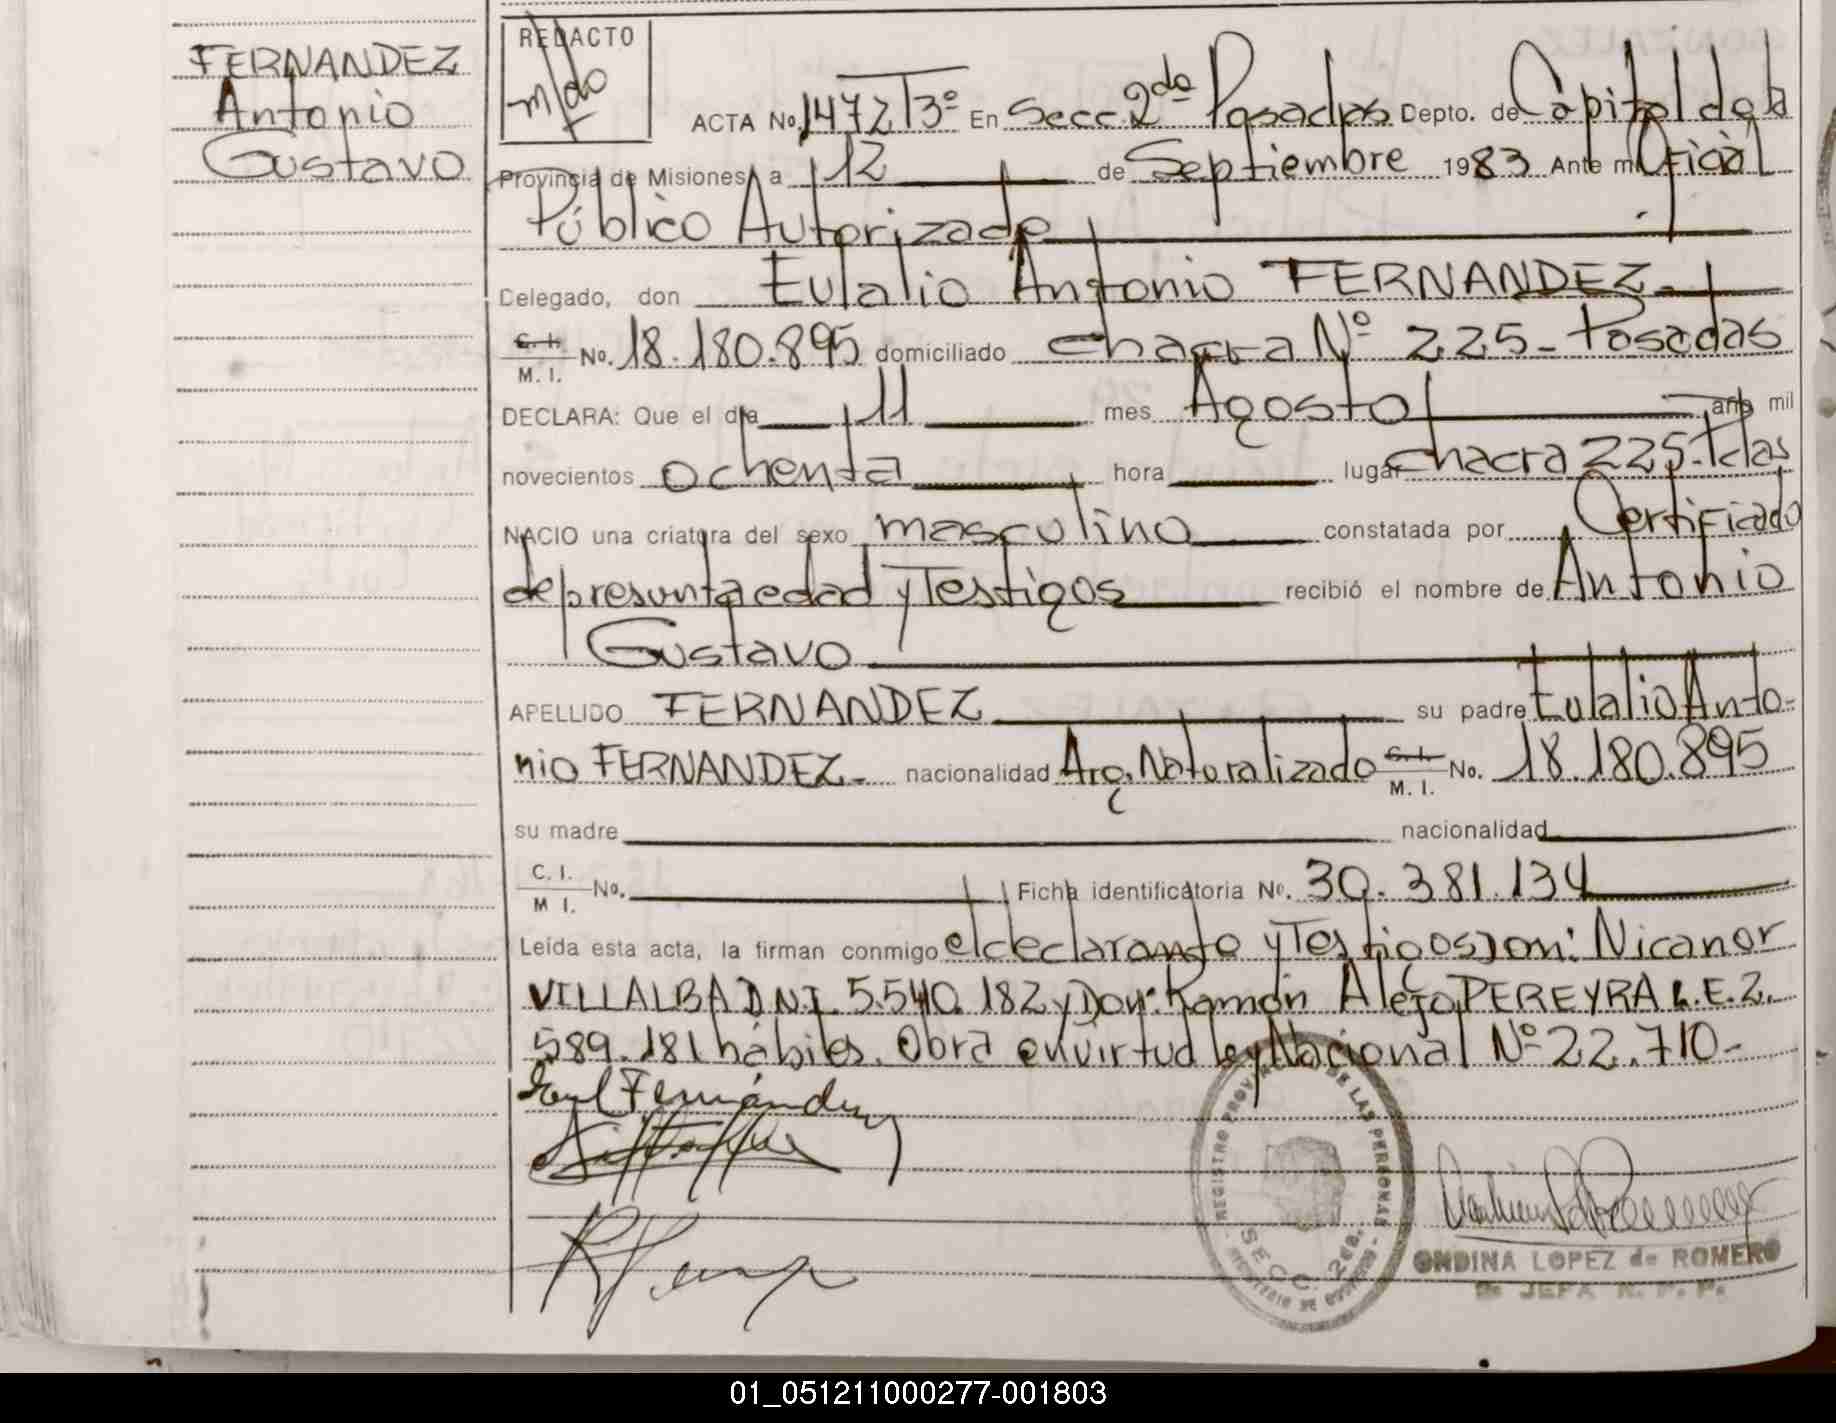 FERNANDEZ
Antonio
Gustavo
REDACTO
ACTA No. 1472 T3º En Secc 2da Posadas Depto. de Capital de la
Provincia de Misiones, a 12 de Septiembre 1983 Ante mi Oficial
Público Autorizado
Delegado, don Eulalio Antonio FERNANDEZ
C. I.
M. I. No. 18.180.895 domiciliado chacra Nº 225 - Posadas
DECLARA: Que el día 11 mes Agosto año mil
novecientos ochenta hora lugar chacra 225-Pdas
NACIO una criatura del sexo masculino constatada por Certificado
de presunta edad y Testigos recibió el nombre de Antonio
Gustavo
APELLIDO FERNANDEZ su padre Eulalio Anto-
nio FERNANDEZ - nacionalidad Arg. Naturalizado C. I. M. I. No. 18.180.895
su madre nacionalidad
C. I.
M. I. No. Ficha identificatoria No. 30.381.134
Leída esta acta, la firman conmigo el declarante y Testigos Don: Nicanor
VILLALBA D.N.I. 5.540.182 y Don: Ramón Alejo PEREYRA L.E. 2.
589.181 hábiles. Obra en virtud ley Nacional Nº 22.710-
Fernández
REGISTRO PROV. DE LAS PERSONAS
SECC. 2da.
ONDINA LOPEZ de ROMERO
JEFA R. P. P.
01_051211000277-001803